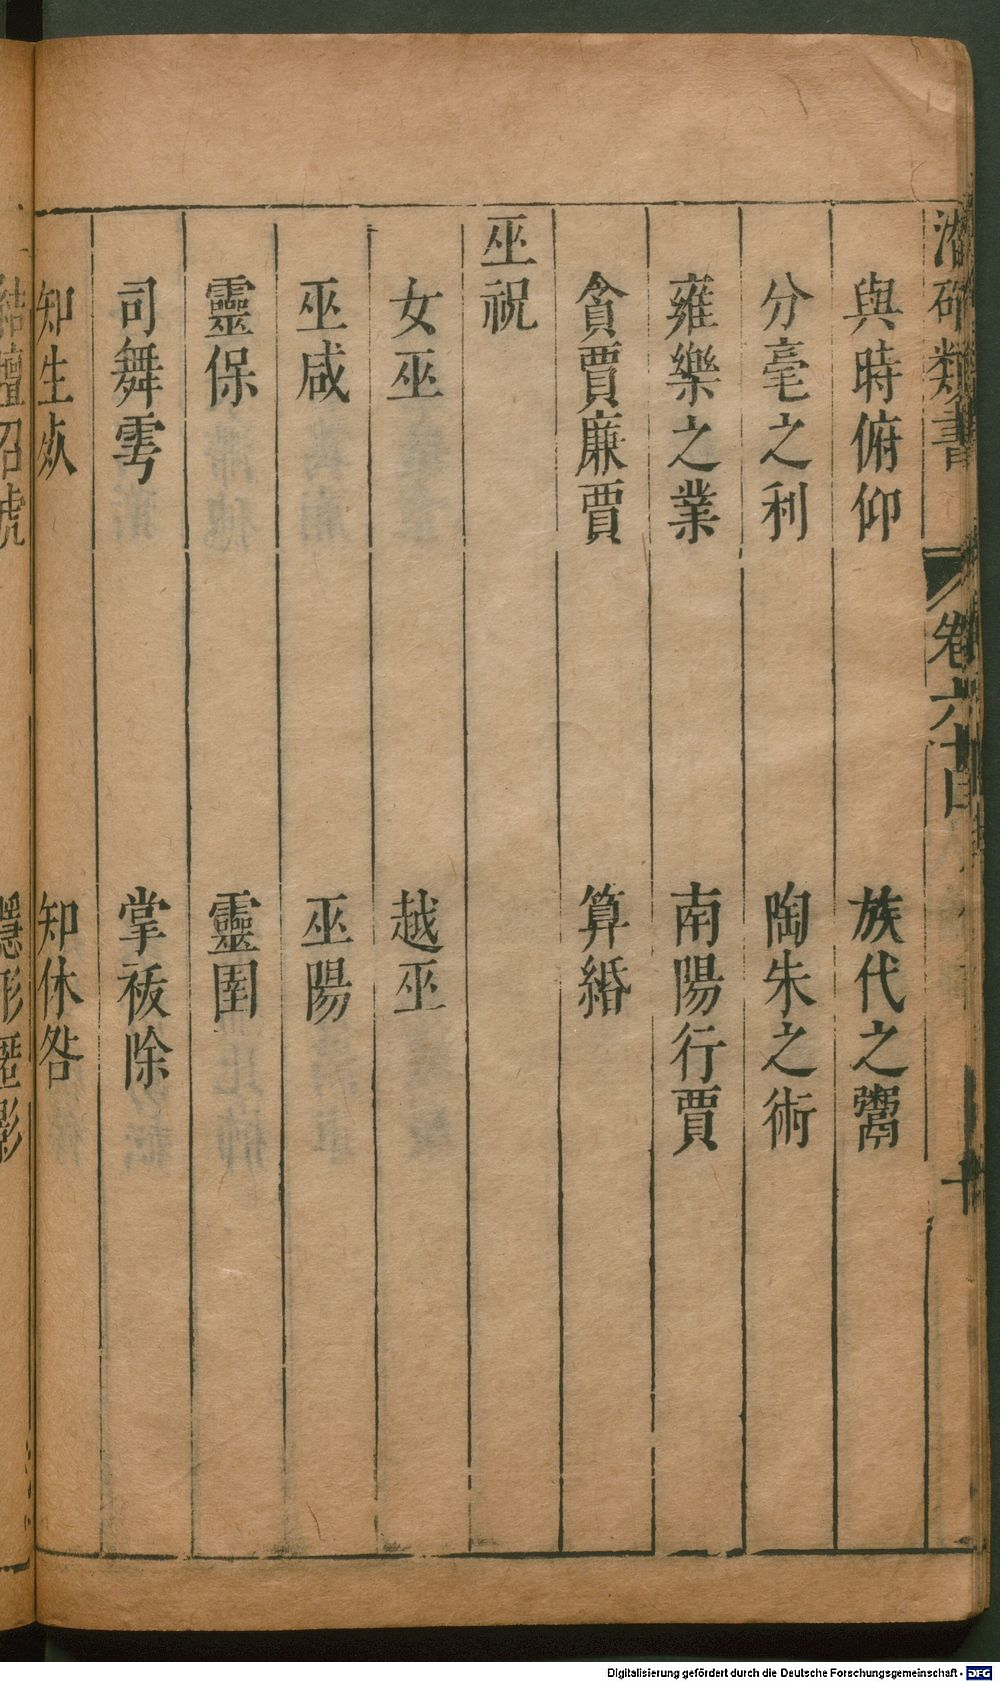 潛確類書
卷六十四
十
與時俯仰 族代之鬻
分毫之利 陶朱之術
雍樂之業 南陽行賈
貪賈廉賈 算緡
巫祝
女巫 越巫
巫咸 巫陽
靈保 靈圉
司舞雩 掌祓除
知生㱽 知休咎
結壇召號 隱形匿影
Digitalisierung gefördert durch die Deutsche Forschungsgemeinschaft - DFG